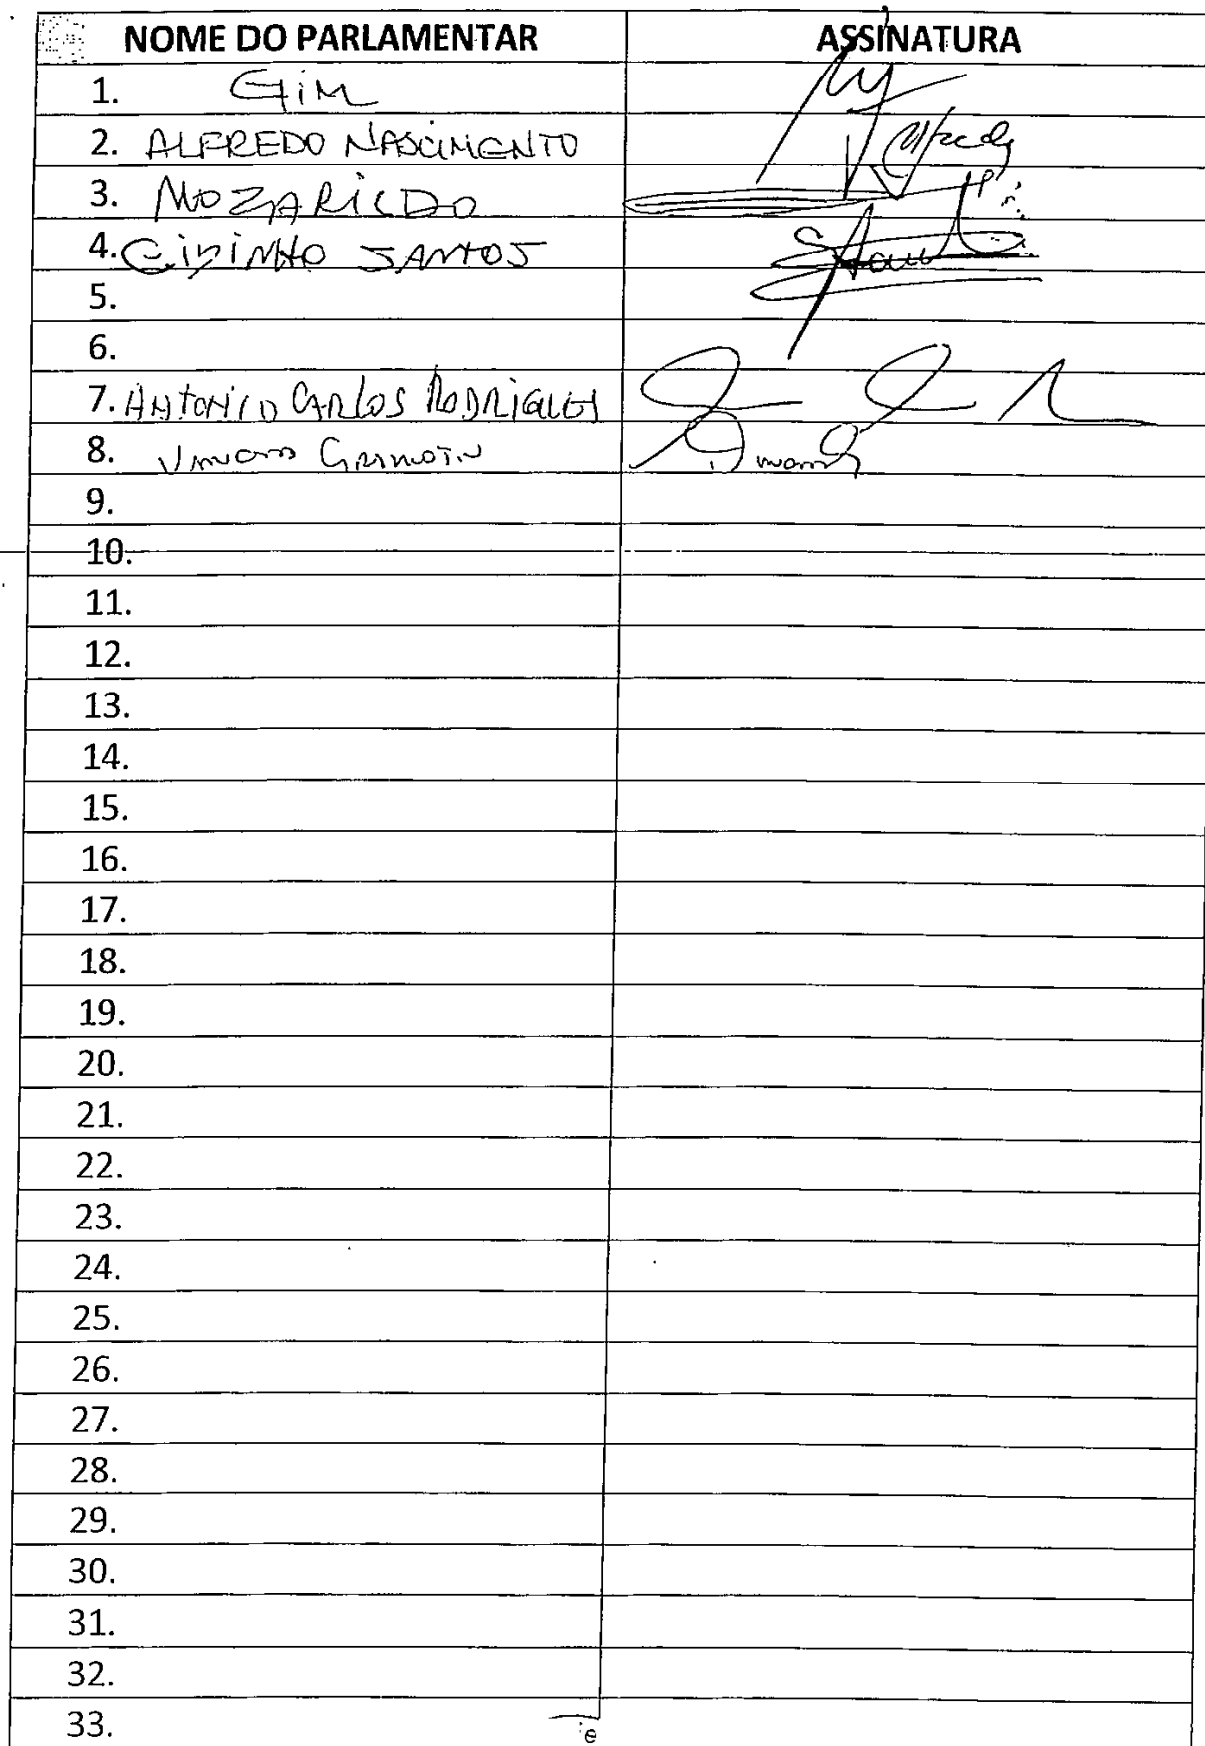 NOME DO PARLAMENTAR ASSINATURA
1. Gim
2. ALFREDO NASCIMENTO
3. MOZARILDO
4. CIDINHO SANTOS
5.
6.
7. ANTONIO CARLOS RODRIGUES
8.
9.
10.
11.
12.
13.
14.
15.
16.
17.
18.
19.
20.
21.
22.
23.
24.
25.
26.
27.
28.
29.
30.
31.
32.
33.